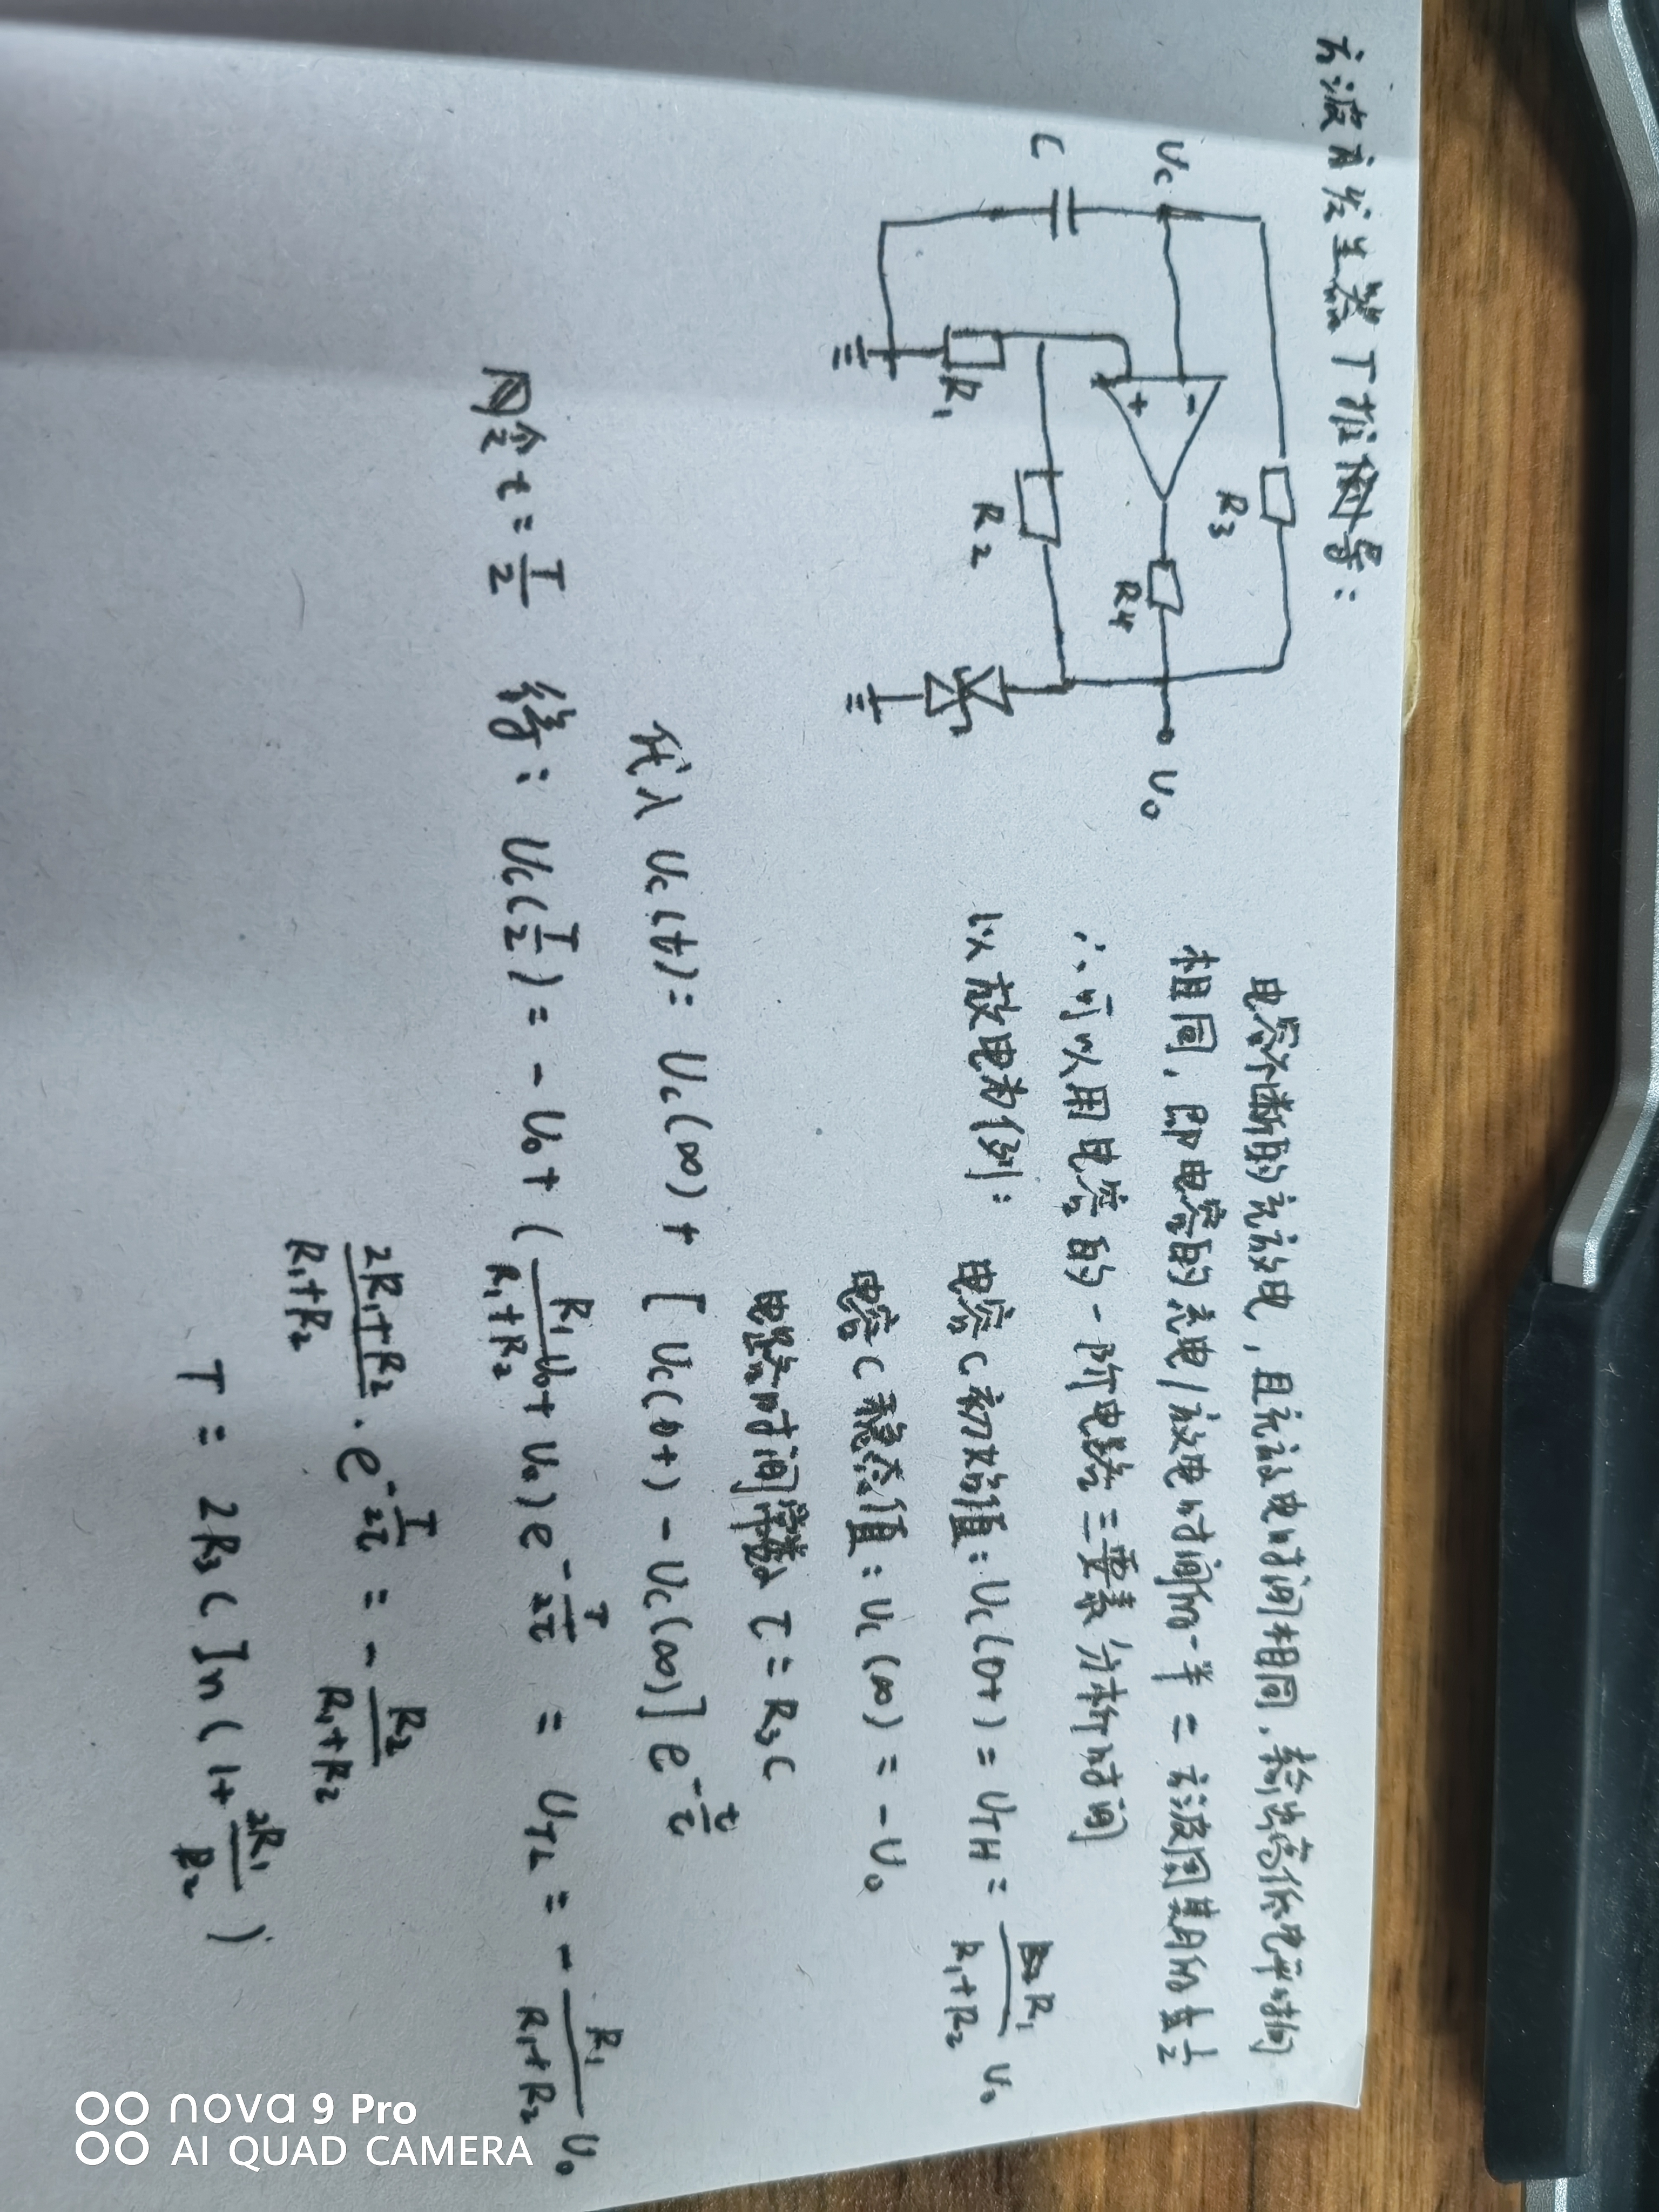 方波发生器T推倒导:
Uc
C
R1
R2
R3
R4
Uo
- +
电容不断的充放电,且充放电时间相同,输出高低电平时间
相同,即电容的充电/放电时间的一半=方波周期的1/2
∴可以用电容的一阶电路三要素分析时间
以放电为例:
电容C初始值:Uc(0+)=UTH=R1/(R1+R2) Uo
电容C稳态值:Uc(∞)=-Uo
电路时间常数τ=R3C
代入 Uc(t)=Uc(∞)+[Uc(0+)-Uc(∞)]e^(-t/τ)
令t=T/2 得:Uc(T/2)=-Uo+(R1/(R1+R2) Uo+Uo)e^(-T/2τ)=UTL=-R1/(R1+R2) Uo
(2R1+R2)/(R1+R2)·e^(-T/2τ)=-R2/(R1+R2)
T=2R3C ln(1+2R1/R2)
nova 9 Pro
AI QUAD CAMERA